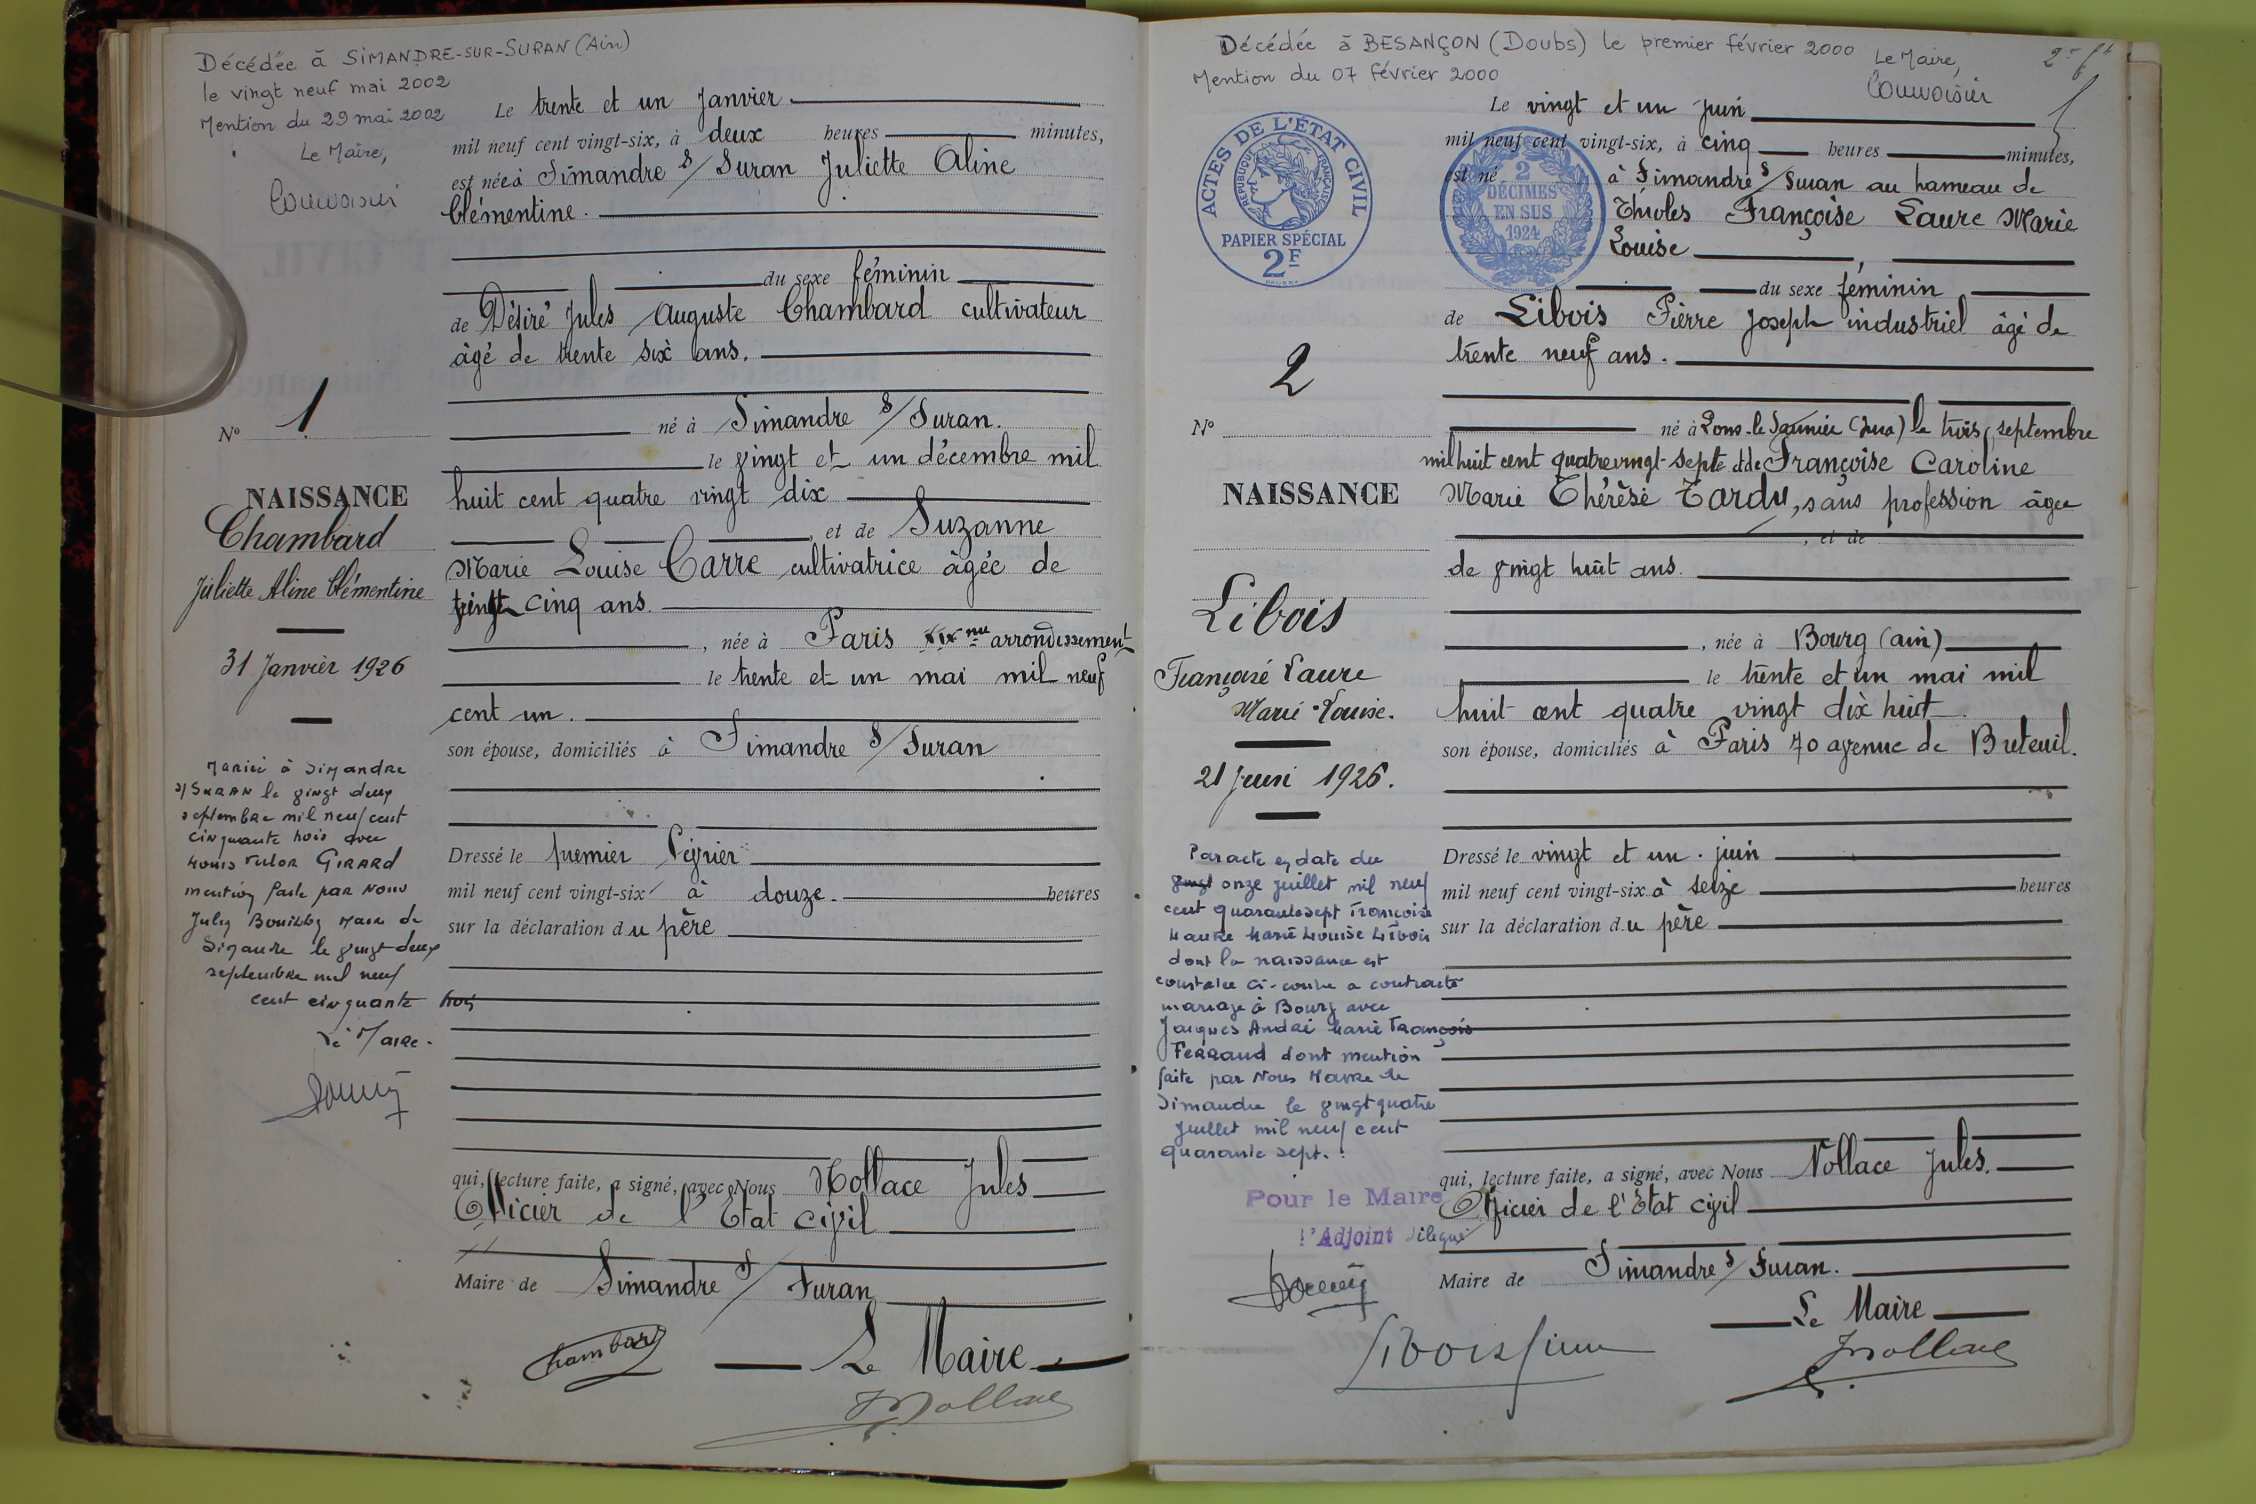 Décédée à SIMANDRE-SUR-SURAN (Ain)
le vingt neuf mai 2002
Mention du 29 mai 2002
Le Maire,
Le trente et un Janvier
mil neuf cent vingt-six, à deux heures minutes,
est née à Simandre s/ Suran Juliette Aline
Clémentine.
du sexe féminin
de Désiré Jules Auguste Chambard cultivateur
âgé de trente six ans.
né à Simandre s/ Suran.
N° 1
le vingt et un décembre mil
huit cent quatre vingt dix
NAISSANCE
Chambard
Juliette Aline Clémentine
31 Janvier 1926
et de Suzanne
Marie Louise Carre cultivatrice âgée de
cinq ans.
, née à Paris XIXme arrondissement
le trente et un mai mil neuf
cent un.
son épouse, domiciliés à Simandre s/ Suran
Mariée à Simandre
s/ SURAN le vingt deux
septembre mil neuf cent
cinquante trois avec
Louis GIRARD
mention faite par Nous
Maire de
Simandre le vingt deux
septembre mil neuf
cent cinquante trois
Le Maire.
Dressé le premier Février
mil neuf cent vingt-six à douze. heures
sur la déclaration du père
qui, lecture faite, a signé, avec Nous Nollace Jules
Officier de l'Etat civil
Maire de Simandre s/ Suran
Chambard
Le Maire
JNollace
Décédée à BESANÇON (Doubs) le premier février 2000
Mention du 07 février 2000
Le Maire,
ACTES DE L'ÉTAT CIVIL
RÉPUBLIQUE FRANÇAISE
PAPIER SPÉCIAL
2F
2
DÉCIMES
EN SUS
1924
Le vingt et un juin
mil neuf cent vingt-six, à cinq heures minutes,
est né à Simandre s/ Suran au hameau de
Thioles Françoise Laure Marie
Louise
du sexe féminin
de Libois Pierre Joseph industriel âgé de
trente neuf ans.
2
N°
né à Lons-le Saunier (Jura) le trois septembre
mil huit cent quatre vingt-sept et de Françoise Caroline
NAISSANCE
Marie Thérèse Tardy, sans profession âgée
, et de
de vingt huit ans.
Libois
Françoise Laure
Marie Louise.
21 Juin 1926.
, née à Bourg (ain)
le trente et un mai mil
huit cent quatre vingt dix huit
son épouse, domiciliés à Paris 70 avenue de Breteuil.
Par acte en date du
vingt onze juillet mil neuf
cent quarante sept Françoise
Laure Marie Louise Libois
dont la naissance est
constatée ci-contre a contracté
mariage à Bourg avec
Jacques André Marie François
FERRAUD dont mention
faite par Nous Maire de
Simandre le vingt quatre
Juillet mil neuf cent
quarante sept.
Pour le Maire
l'Adjoint délégué
Dressé le vingt et un juin
mil neuf cent vingt-six à seize heures
sur la déclaration du père
qui, lecture faite, a signé, avec Nous Nollace Jules.
Officier de l'Etat civil
Maire de Simandre s/ Suran.
Le Maire
JNollace